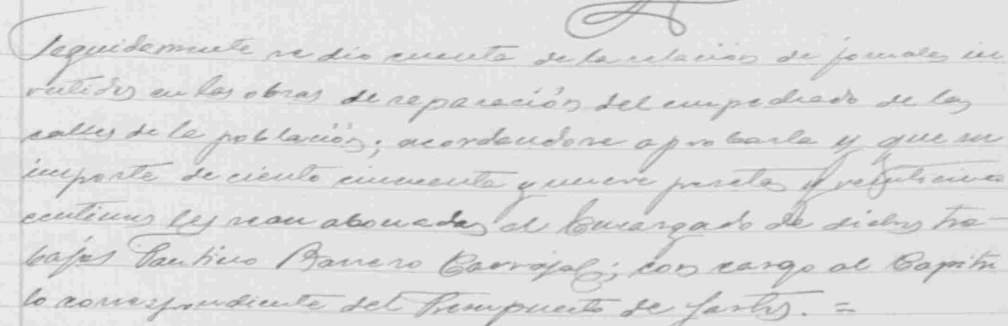 Seguidamente se dio cuenta de la relación de jornales in
vertidos en las obras de reparación del empedrado de las
calles de la población; acordandose aprobarla y que su
importe de ciento cincuenta y nueve pesetas y veinticinco
centimos les sean abonadas al Encargado de dichos tra-
bajos Santino Barrero Carvajal; con cargo al Capitu
lo correspondiente del Presupuesto de Gastos. =